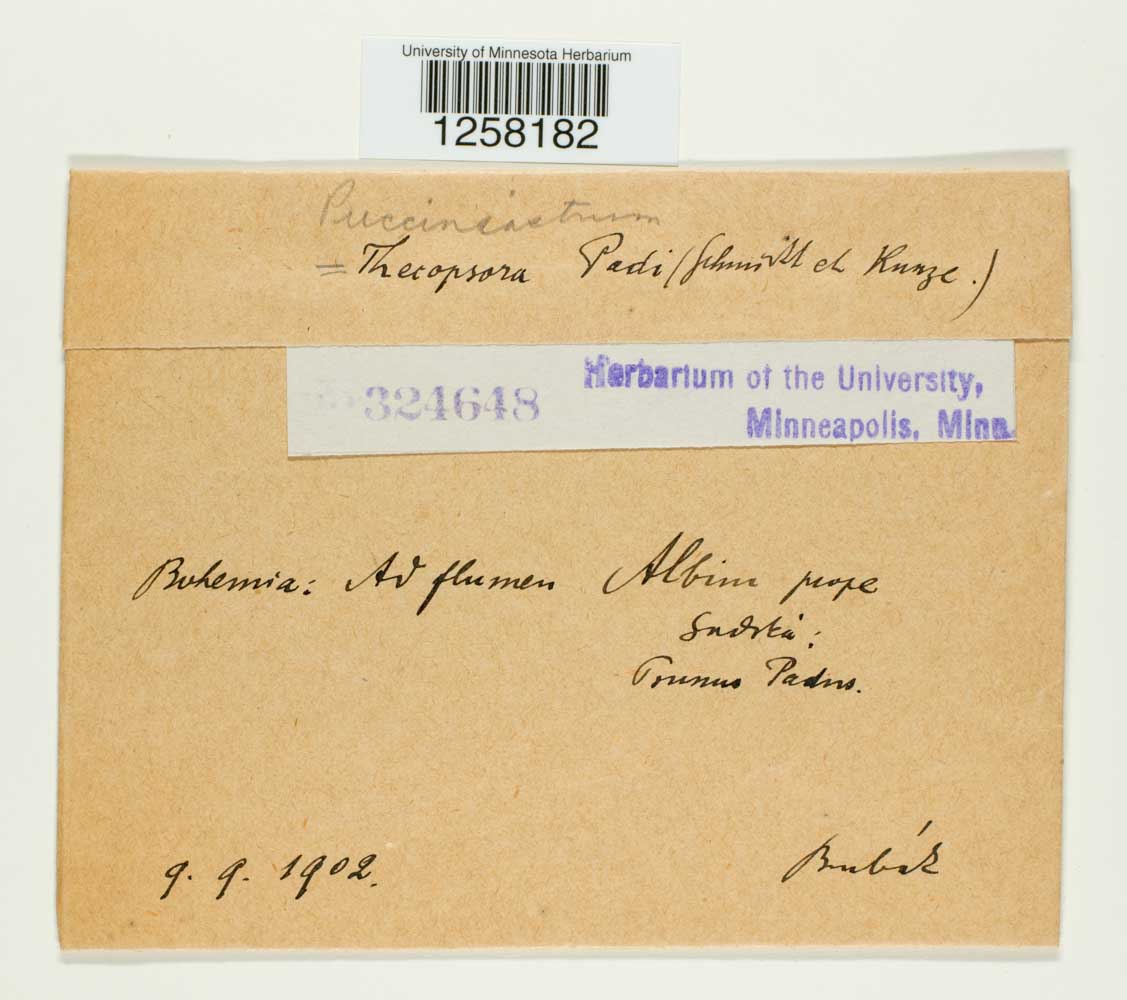 University of Minnesota Herbarium
1258182
Pucciniastrum
= Thecopsora Padi (Schmidt et Kunze.)
324648
Herbarium of the University,
Minneapolis, Minn.
Bohemia: Ad flumen Albim prope
Sadská:
Prunus Padus.
9. 9. 1902.
Bubák